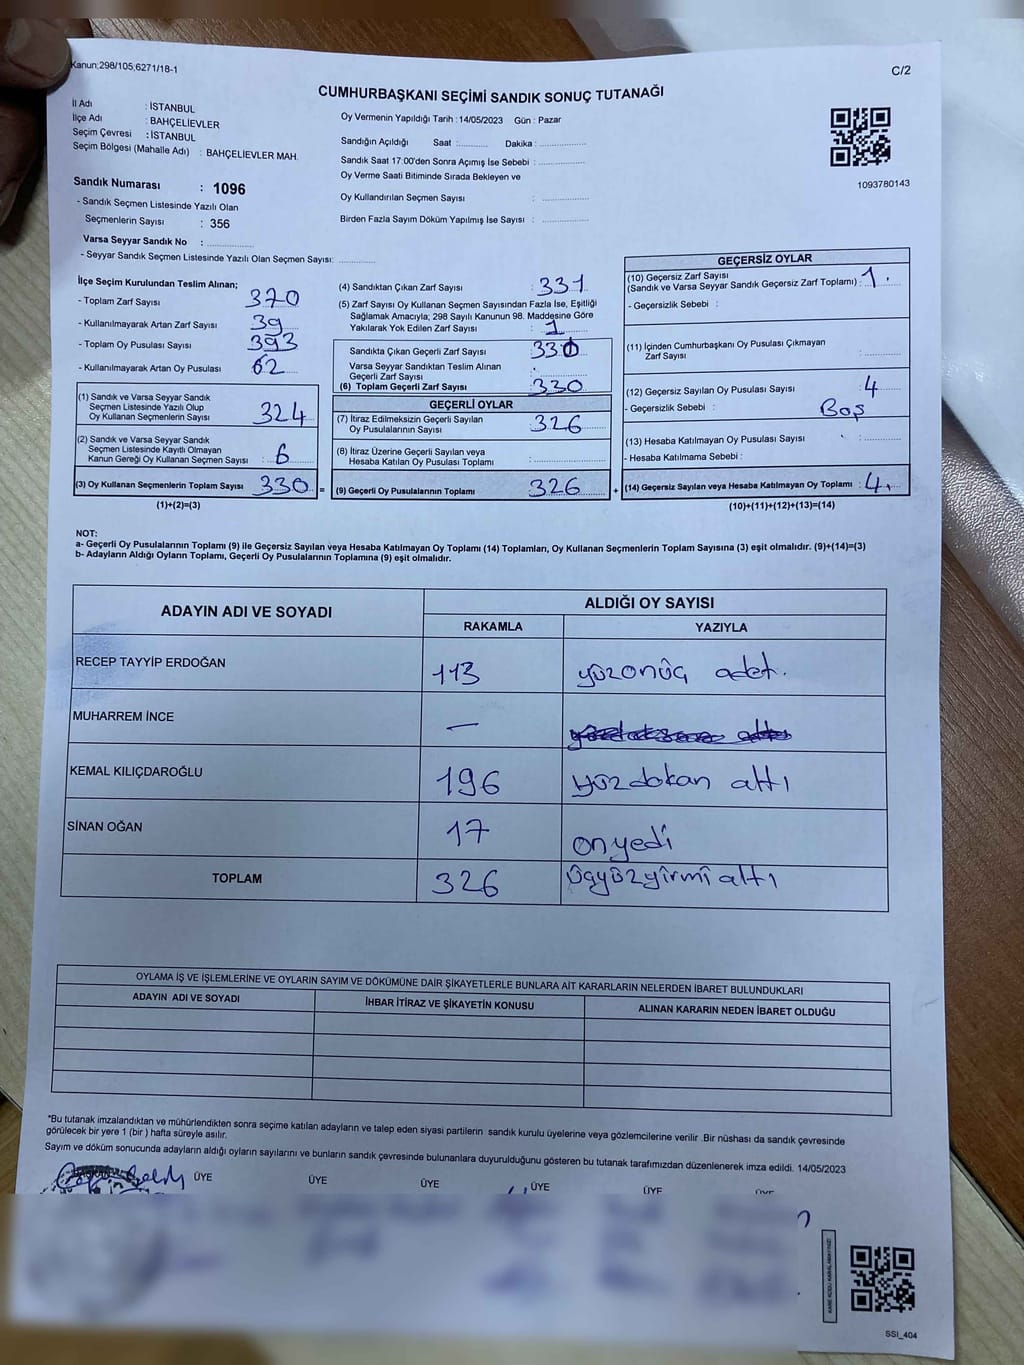 Kanun;298/105,6271/18-1
C/2
CUMHURBAŞKANI SEÇİMİ SANDIK SONUÇ TUTANAĞI
İl Adı : İSTANBUL
İlçe Adı : BAHÇELİEVLER
Seçim Çevresi : İSTANBUL
Seçim Bölgesi (Mahalle Adı) : BAHÇELİEVLER MAH.
Sandık Numarası : 1096
- Sandık Seçmen Listesinde Yazılı Olan
Seçmenlerin Sayısı : 356
Varsa Seyyar Sandık No :
- Seyyar Sandık Seçmen Listesinde Yazılı Olan Seçmen Sayısı:
Oy Vermenin Yapıldığı Tarih : 14/05/2023 Gün : Pazar
Sandığın Açıldığı Saat : Dakika :
Sandık Saat 17:00'den Sonra Açımış İse Sebebi :
Oy Verme Saati Bitiminde Sırada Bekleyen ve
Oy Kullandırılan Seçmen Sayısı :
Birden Fazla Sayım Döküm Yapılmış İse Sayısı :
1093780143
İlçe Seçim Kurulundan Teslim Alınan;
- Toplam Zarf Sayısı 370
- Kullanılmayarak Artan Zarf Sayısı 39
- Toplam Oy Pusulası Sayısı 393
- Kullanılmayarak Artan Oy Pusulası 62
(1) Sandık ve Varsa Seyyar Sandık
Seçmen Listesinde Yazılı Olup
Oy Kullanan Seçmenlerin Sayısı 324
(2) Sandık ve Varsa Seyyar Sandık
Seçmen Listesinde Kayıtlı Olmayan
Kanun Gereği Oy Kullanan Seçmen Sayısı : 6
(3) Oy Kullanan Seçmenlerin Toplam Sayısı 330 =
(1)+(2)=(3)
(4) Sandıktan Çıkan Zarf Sayısı : 331
(5) Zarf Sayısı Oy Kullanan Seçmen Sayısından Fazla İse, Eşitliği
Sağlamak Amacıyla; 298 Sayılı Kanunun 98. Maddesine Göre
Yakılarak Yok Edilen Zarf Sayısı : 1
Sandıkta Çıkan Geçerli Zarf Sayısı 330
Varsa Seyyar Sandıktan Teslim Alınan
Geçerli Zarf Sayısı :
(6) Toplam Geçerli Zarf Sayısı 330
GEÇERLİ OYLAR
(7) İtiraz Edilmeksizin Geçerli Sayılan
Oy Pusulalarının Sayısı 326
(8) İtiraz Üzerine Geçerli Sayılan veya
Hesaba Katılan Oy Pusulası Toplamı
(9) Geçerli Oy Pusulalarının Toplamı 326 +
GEÇERSİZ OYLAR
(10) Geçersiz Zarf Sayısı
(Sandık ve Varsa Seyyar Sandık Geçersiz Zarf Toplamı) : 1.
- Geçersizlik Sebebi :
(11) İçinden Cumhurbaşkanı Oy Pusulası Çıkmayan
Zarf Sayısı :
(12) Geçersiz Sayılan Oy Pusulası Sayısı : 4
- Geçersizlik Sebebi : Boş
(13) Hesaba Katılmayan Oy Pusulası Sayısı :
- Hesaba Katılmama Sebebi :
(14) Geçersiz Sayılan veya Hesaba Katılmayan Oy Toplamı : 4.
(10)+(11)+(12)+(13)=(14)
NOT:
a- Geçerli Oy Pusulalarının Toplamı (9) ile Geçersiz Sayılan veya Hesaba Katılmayan Oy Toplamı (14) Toplamları, Oy Kullanan Seçmenlerin Toplam Sayısına (3) eşit olmalıdır. (9)+(14)=(3)
b- Adayların Aldığı Oyların Toplamı, Geçerli Oy Pusulalarının Toplamına (9) eşit olmalıdır.
ADAYIN ADI VE SOYADI
ALDIĞI OY SAYISI
RAKAMLA YAZIYLA
RECEP TAYYİP ERDOĞAN 113 yüzonüç adet.
MUHARREM İNCE —
KEMAL KILIÇDAROĞLU 196 yüzdoksan altı
SİNAN OĞAN 17 onyedi
TOPLAM 326 üçyüzyirmi altı
OYLAMA İŞ VE İŞLEMLERİNE VE OYLARIN SAYIM VE DÖKÜMÜNE DAİR ŞİKAYETLERLE BUNLARA AİT KARARLARIN NELERDEN İBARET BULUNDUKLARI
ADAYIN ADI VE SOYADI İHBAR İTİRAZ VE ŞİKAYETİN KONUSU ALINAN KARARIN NEDEN İBARET OLDUĞU
*Bu tutanak imzalandıktan ve mühürlendikten sonra seçime katılan adayların ve talep eden siyasi partilerin sandık kurulu üyelerine veya gözlemcilerine verilir .Bir nüshası da sandık çevresinde
görülecek bir yere 1 (bir ) hafta süreyle asılır.
Sayım ve döküm sonucunda adayların aldığı oyların sayılarını ve bunların sandık çevresinde bulunanlara duyurulduğunu gösteren bu tutanak tarafımızdan düzenlenerek imza edildi. 14/05/2023
BAŞKAN ÜYE ÜYE ÜYE ÜYE ÜYE ÜYE
SSI_404